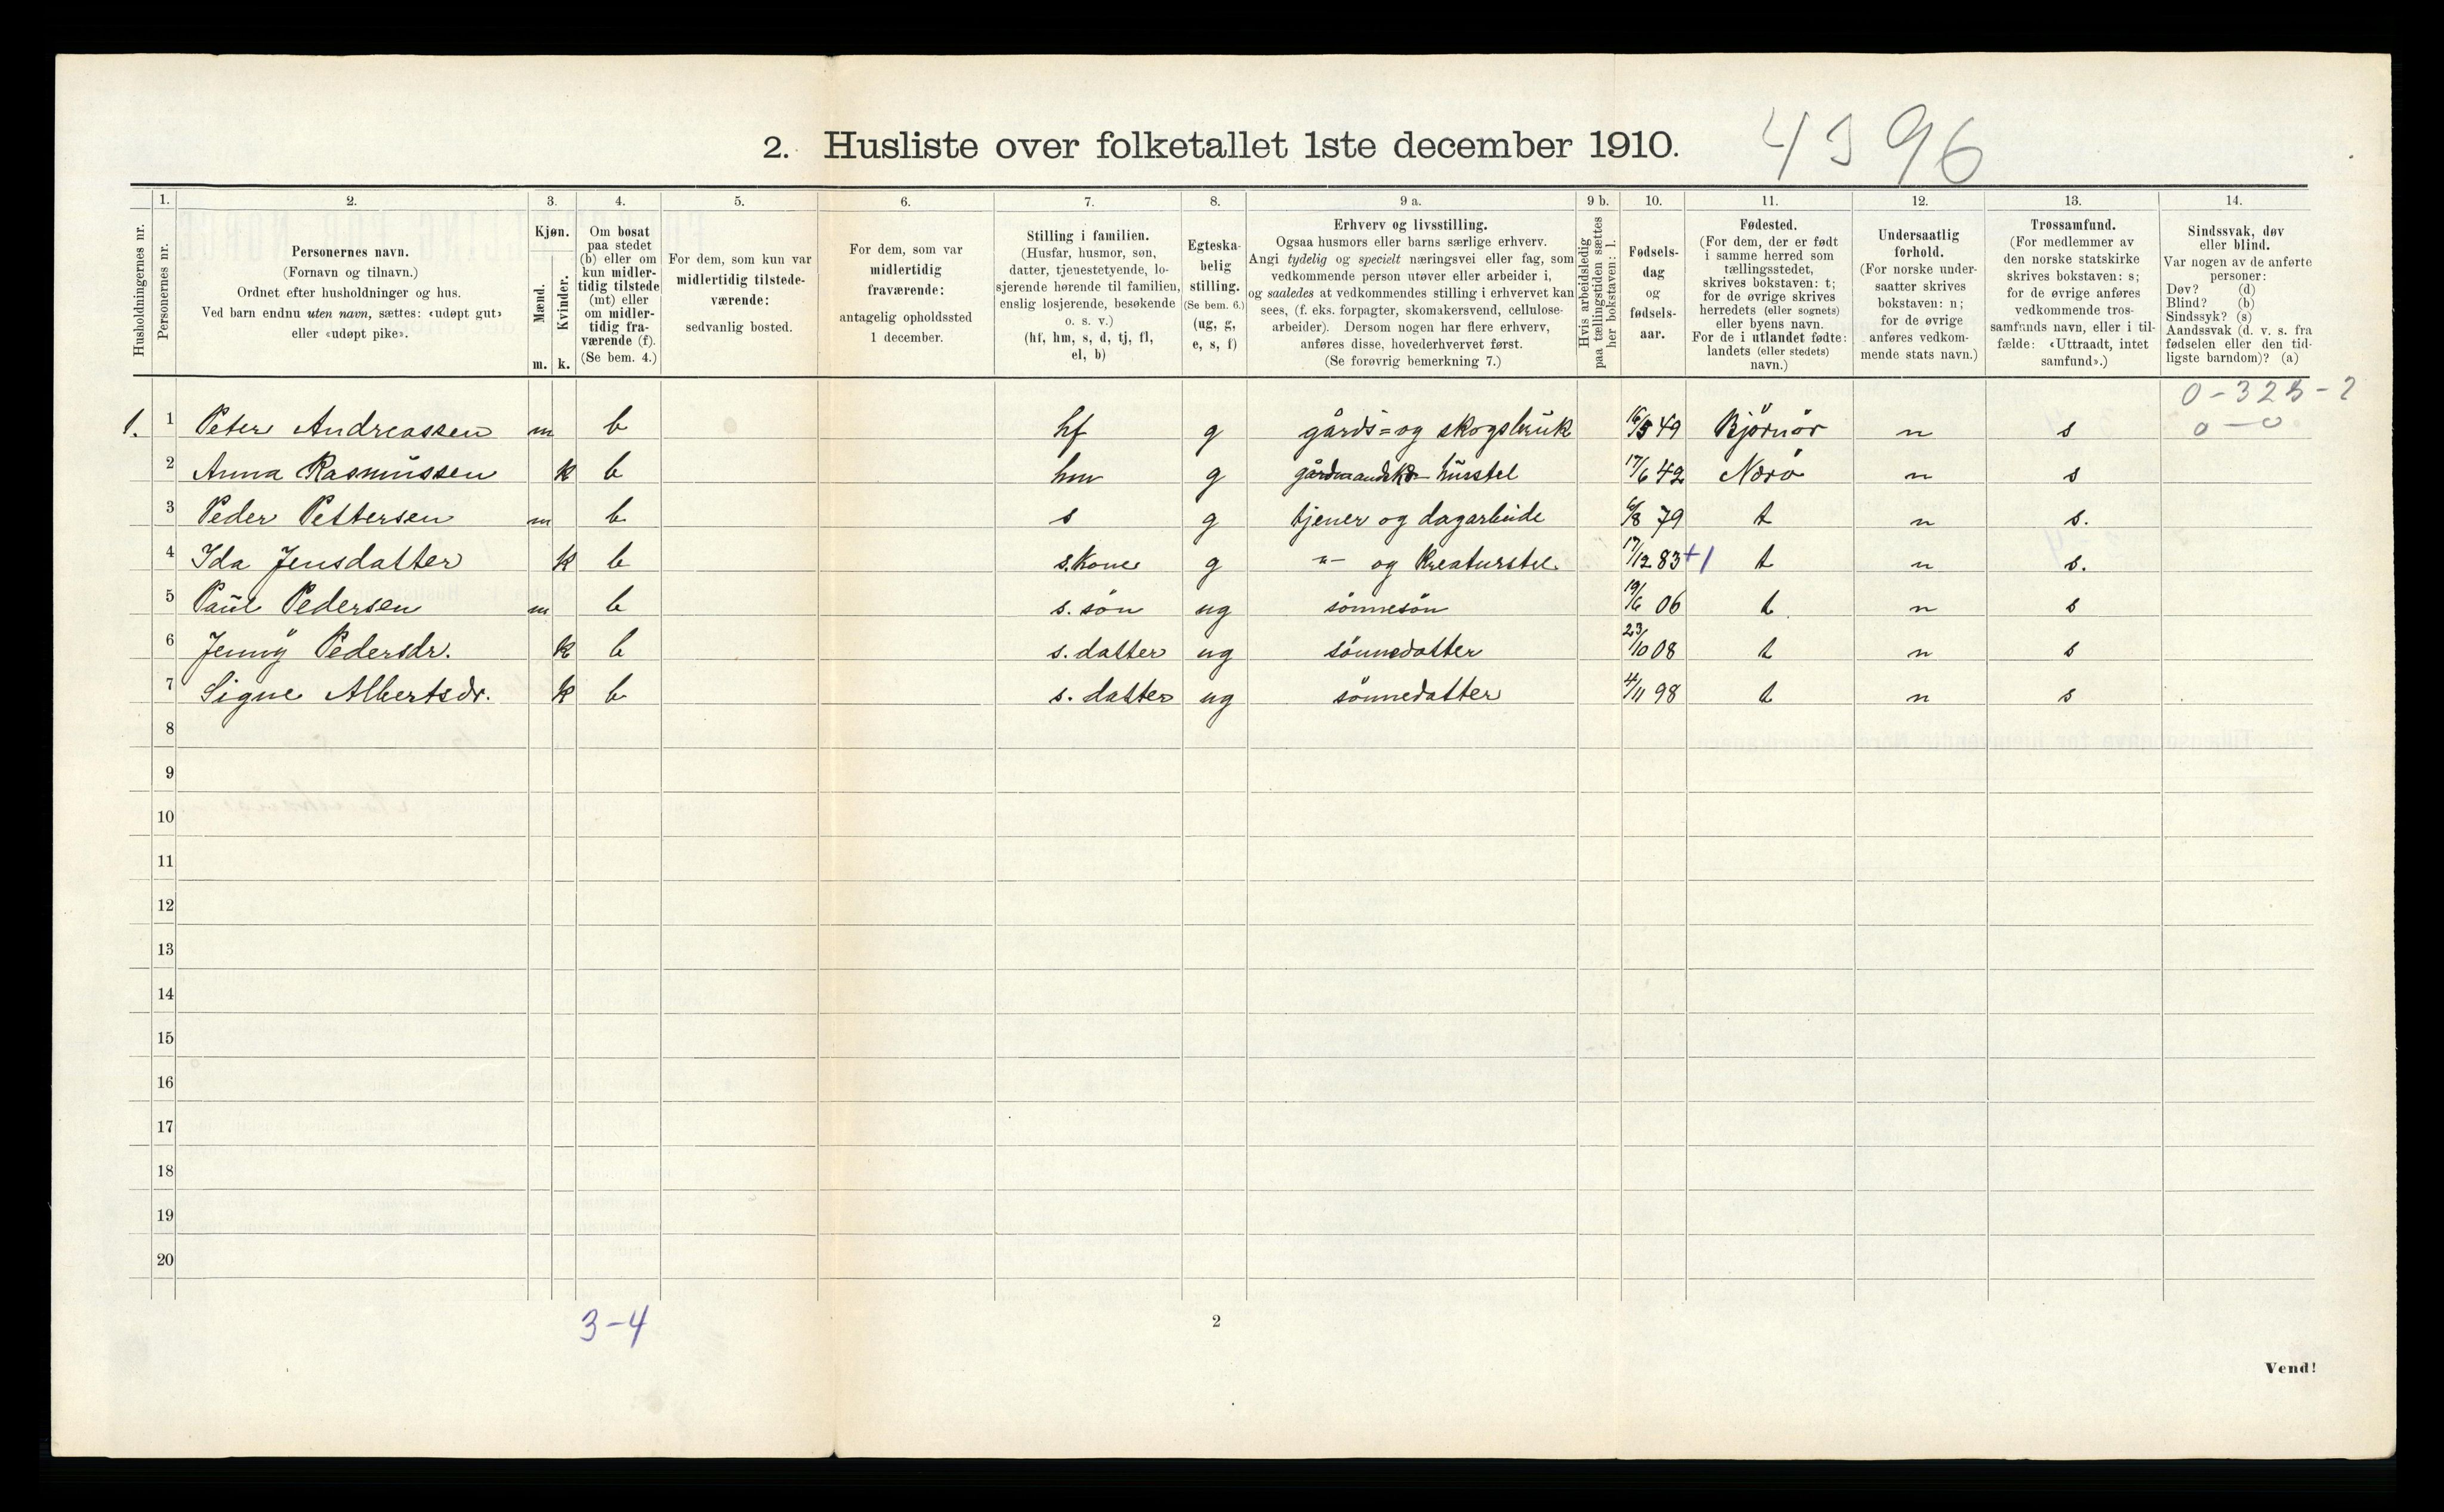 2. Husliste over folketallet 1ste december 1910. 4396
1. 2. 3. 4. 5. 6. 7. 8. 9 a. 9 b. 10. 11. 12. 13. 14.
Husholdningernes nr.
Personernes nr.
Personernes navn.
(Fornavn og tilnavn.)
Ordnet efter husholdninger og hus.
Ved barn endnu uten navn, sættes: «udøpt gut»
eller «udøpt pike».
Kjøn.
Mænd.
Kvinder.
m. k.
Om bosat
paa stedet
(b) eller om
kun midler-
tidig tilstede
(mt) eller
om midler-
tidig fra-
værende (f).
(Se bem. 4.)
For dem, som kun var
midlertidig tilstede-
værende:
sedvanlig bosted.
For dem, som var
midlertidig
fraværende:
antagelig opholdssted
1 december.
Stilling i familien.
(Husfar, husmor, søn,
datter, tjenestetyende, lo-
sjerende hørende til familien,
enslig losjerende, besøkende
o. s. v.)
(hf, hm, s, d, tj, fl,
el, b)
Egteska-
belig
stilling.
(Se bem. 6.)
(ug, g,
e, s, f)
Erhverv og livsstilling.
Ogsaa husmors eller barns særlige erhverv.
Angi tydelig og specielt næringsvei eller fag, som
vedkommende person utøver eller arbeider i,
og saaledes at vedkommendes stilling i erhvervet kan
sees, (f. eks. forpagter, skomakersvend, cellulose-
arbeider). Dersom nogen har flere erhverv,
anføres disse, hovederhvervet først.
(Se forøvrig bemerkning 7.)
Hvis arbeidsledig
paa tællingstiden sættes
her bokstaven: l.
Fødsels-
dag
og
fødsels-
aar.
Fødested.
(For dem, der er født
i samme herred som
tællingsstedet,
skrives bokstaven: t;
for de øvrige skrives
herredets (eller sognets)
eller byens navn.
For de i utlandet fødte:
landets (eller stedets)
navn.)
Undersaatlig
forhold.
(For norske under-
saatter skrives
bokstaven: n;
for de øvrige
anføres vedkom-
mende stats navn.)
Trossamfund.
(For medlemmer av
den norske statskirke
skrives bokstaven: s;
for de øvrige anføres
vedkommende tros-
samfunds navn, eller i til-
fælde: «Uttraadt, intet
samfund».)
Sindssvak, døv
eller blind.
Var nogen av de anførte
personer:
Døv? (d)
Blind? (b)
Sindssyk? (s)
Aandssvak (d. v. s. fra
fødselen eller den tid-
ligste barndom)? (a)
0-325-2
0-0
1. 1 Peter Andreassen m b hf g gårds= og skogsbruk 16/5 49 Bjørnör n s
2 Anna Rasmussen k b hm g husstel 17/6 42 Nærö n s
3 Peder Pettersen m b s g tjener og dagarbeide 6/8 79 t n s.
4 Ida Jensdatter k b s. kone g -"- og Kreaturstel. 17/12 83 +1 t n s.
5 Paul Pedersen m b s. sön ug sönnesön 19/6 06 t n s
6 Jenny Pedersdr. k b s. datter ug sönnedatter 23/10 08 t n s
7 Signe Albertsdr. k b s. datter ug sönnedatter 4/11 98 t n s
8
9
10
11
12
13
14
15
16
17
18
19
20
3-4
2
Vend!